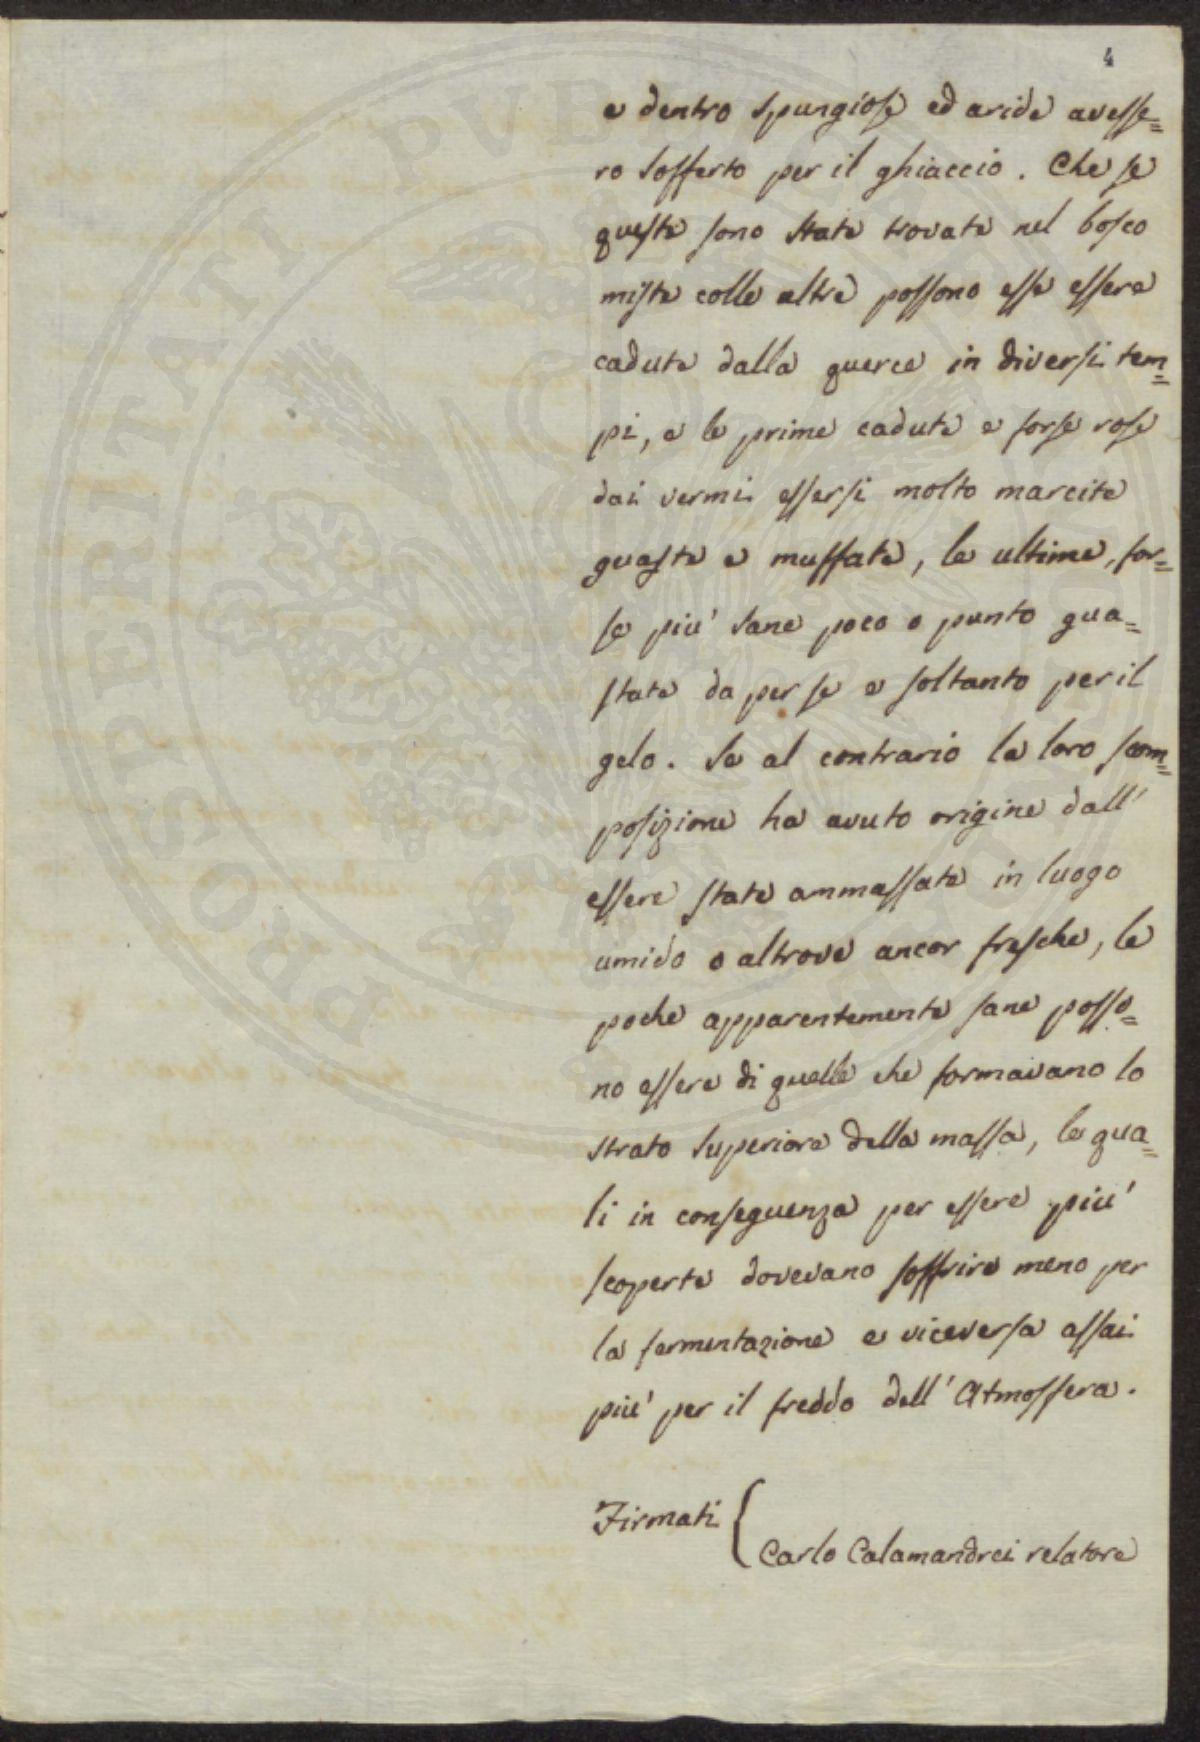 4
e dentro spungiose ed aride avesse=
ro sofferto per il ghiaccio. Che se
queste sono state trovate nel bosco
miste colle altre possono esse essere
cadute dalla querce in diversi tem=
pi, e le prime cadute e forse rose
dai vermi essersi molto marcite
guaste e muffate, le ultime, for=
se più sane poco o punto gua=
state da per se e soltanto per il
gelo. Se al contrario la loro scom=
posizione ha avuto origine dall'
essere state ammassate in luogo
umido o altrove ancor fresche, le
poche apparentemente sane posso=
no essere di quelle che formavano lo
strato superiore della massa, le qua=
li in conseguenza per essere più
scoperte dovevano soffrire meno per
la fermentazione e viceversa assai
più per il freddo dell'Atmosfera.
Firmati {
Carlo Calamandrei relatore
PROSPERITATI PVBLICAE